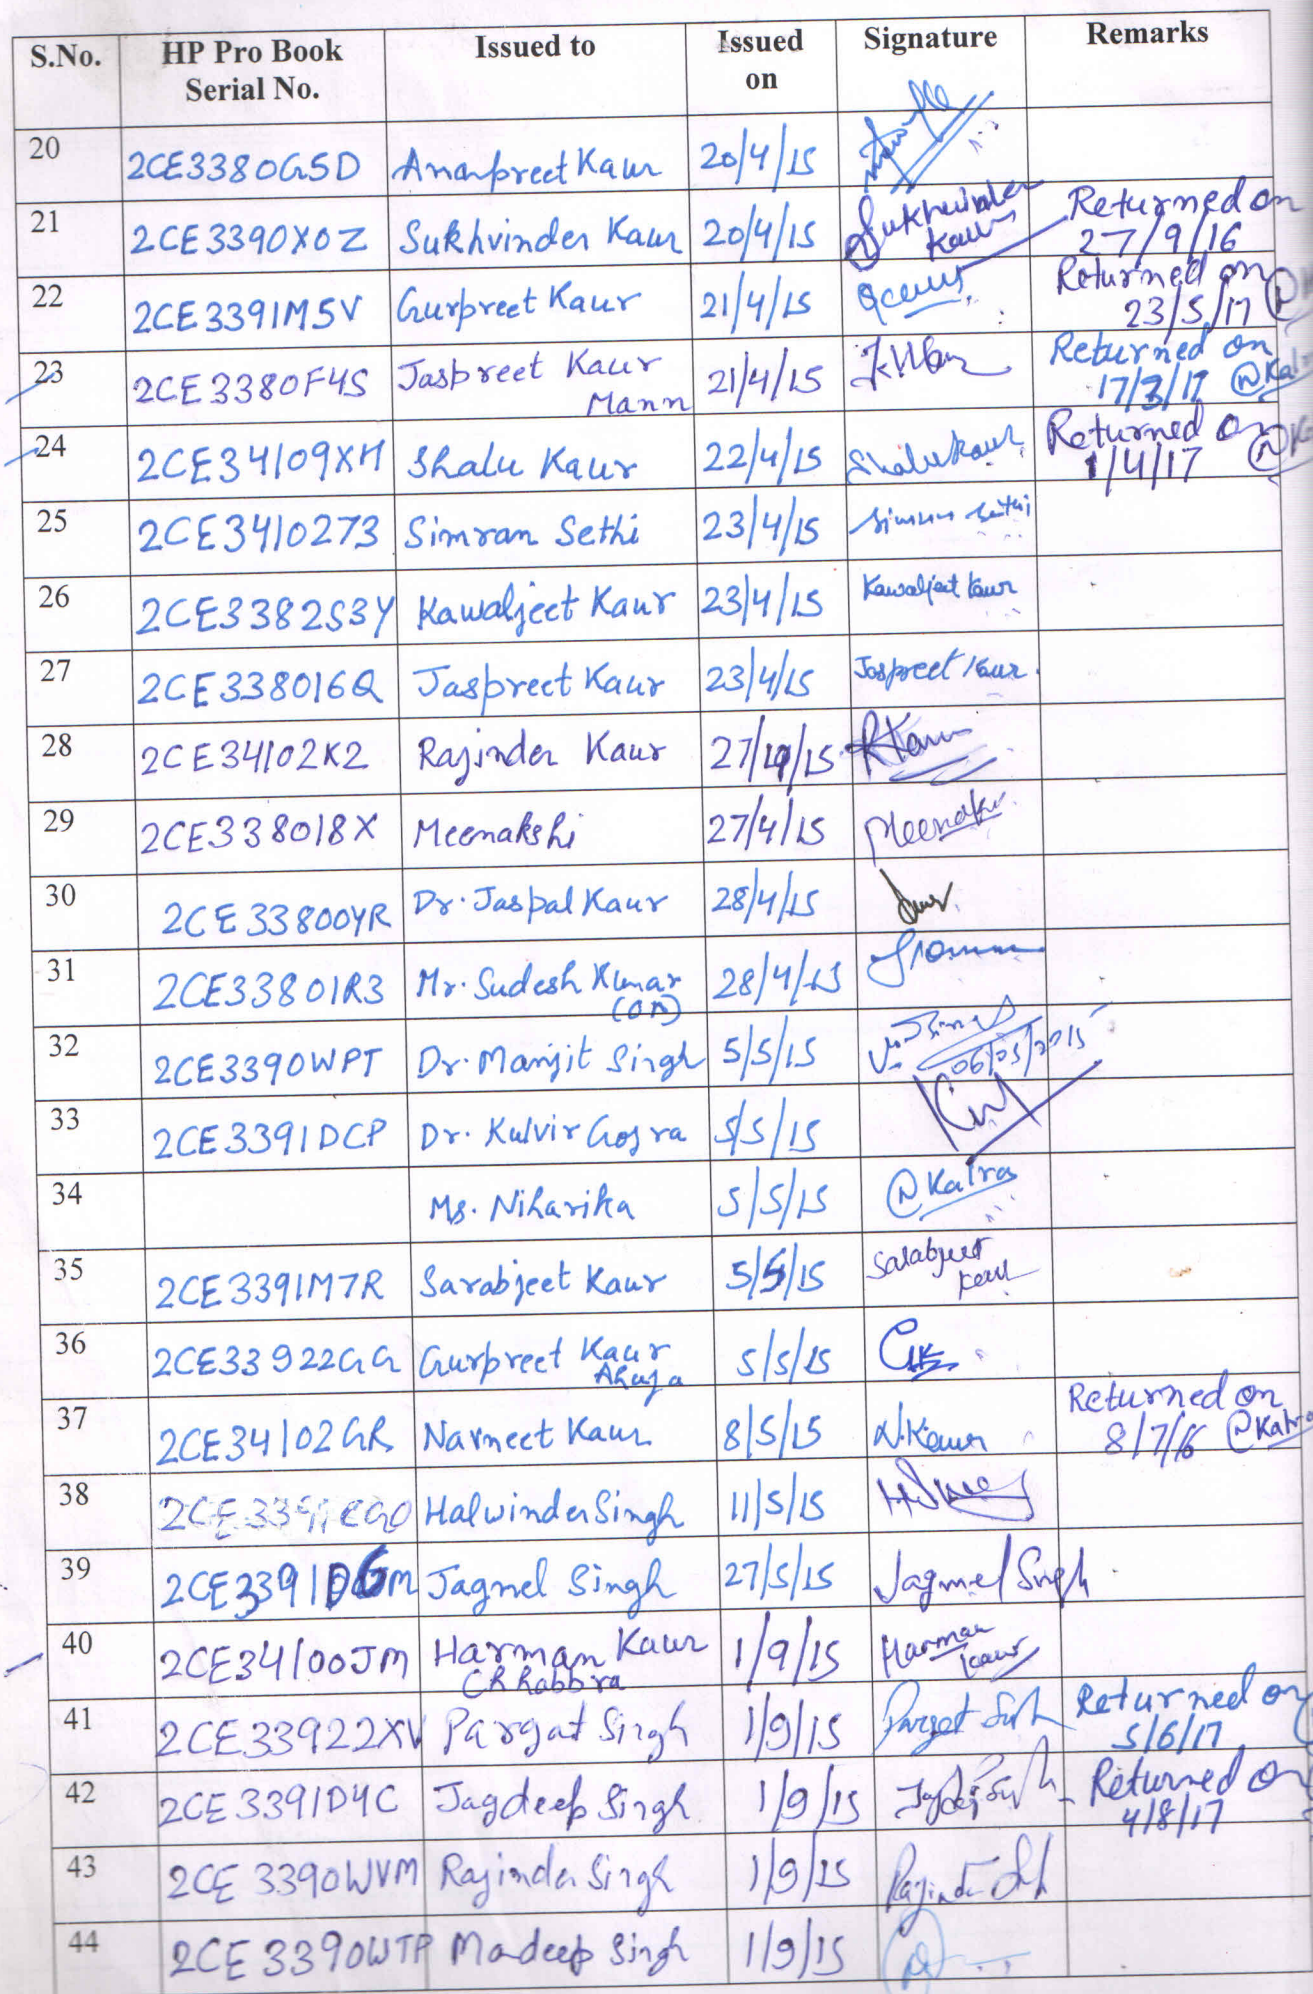 S.No. HP Pro Book Serial No. Issued to Issued on Signature Remarks
20 2CE3380G5D Anapreet Kaur 20/4/15
21 2CE3390X0Z Sukhvinder Kaur 20/4/15 Sukhwinder Kaur Returned on 27/9/16
22 2CE3391M5V Gurpreet Kaur 21/4/15 Returned on 23/5/17
23 2CE3380F4S Jaspreet Kaur Mann 21/4/15 Returned on 17/3/17
24 2CE34109XH Shalu Kaur 22/4/15 Shalu Kaur Returned on 1/4/17
25 2CE3410273 Simran Sethi 23/4/15 Simran Sethi
26 2CE3382S3Y Kawaljeet Kaur 23/4/15 Kawaljeet Kaur
27 2CE338016Q Jaspreet Kaur 23/4/15 Jaspreet Kaur.
28 2CE34102K2 Rajinder Kaur 27/4/15 RKaur
29 2CE338018X Meenakshi 27/4/15 Meenakshi
30 2CE33800YR Dr. Jaspal Kaur 28/4/15
31 2CE33801R3 Mr. Sudesh Kumar 28/4/15
32 2CE3390WPT Dr. Manjit Singh 5/5/15 06/05/2015
33 2CE3391DCP Dr. Kulvir Gojra 5/5/15
34 Ms. Niharika 5/5/15 @Kalra
35 2CE3391M7R Sarabjeet Kaur 5/5/15 Sarabjeet Kaur
36 2CE33922GG Gurpreet Kaur Ahuja 5/5/15
37 2CE34102GR Navneet Kaur 8/5/15 N.Kaur Returned on 8/7/16 @Kalra
38 Halwinder Singh 11/5/15
39 Jagmel Singh 27/5/15 Jagmel Singh
40 2CE34100JM Harman Kaur Chhabbra 1/9/15 Harman Kaur
41 2CE33922XV Pargat Singh 1/9/15 Returned on 5/6/17
42 2CE3391D4C Jagdeep Singh 1/9/15 Returned on 4/8/17
43 2CE3390WVM Rajinder Singh 1/9/15
44 2CE3390WTP Mandeep Singh 1/9/15